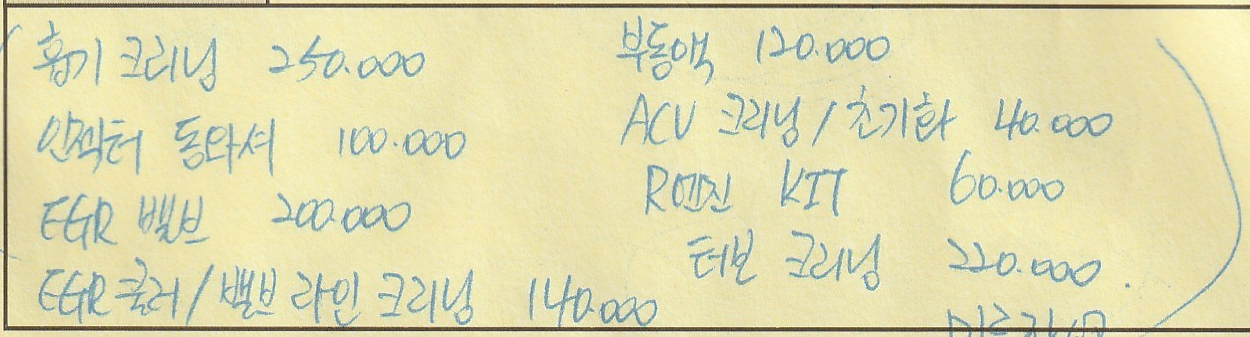 흡기 크리닝 250.000
인젝터 동와셔 100.000
EGR 밸브 200.000
EGR쿨러/밸브 라인 크리닝 140.000
부동액 120.000
ACV 크리닝/초기화 40.000
R엔진 KIT 60.000
터보 크리닝 220.000.